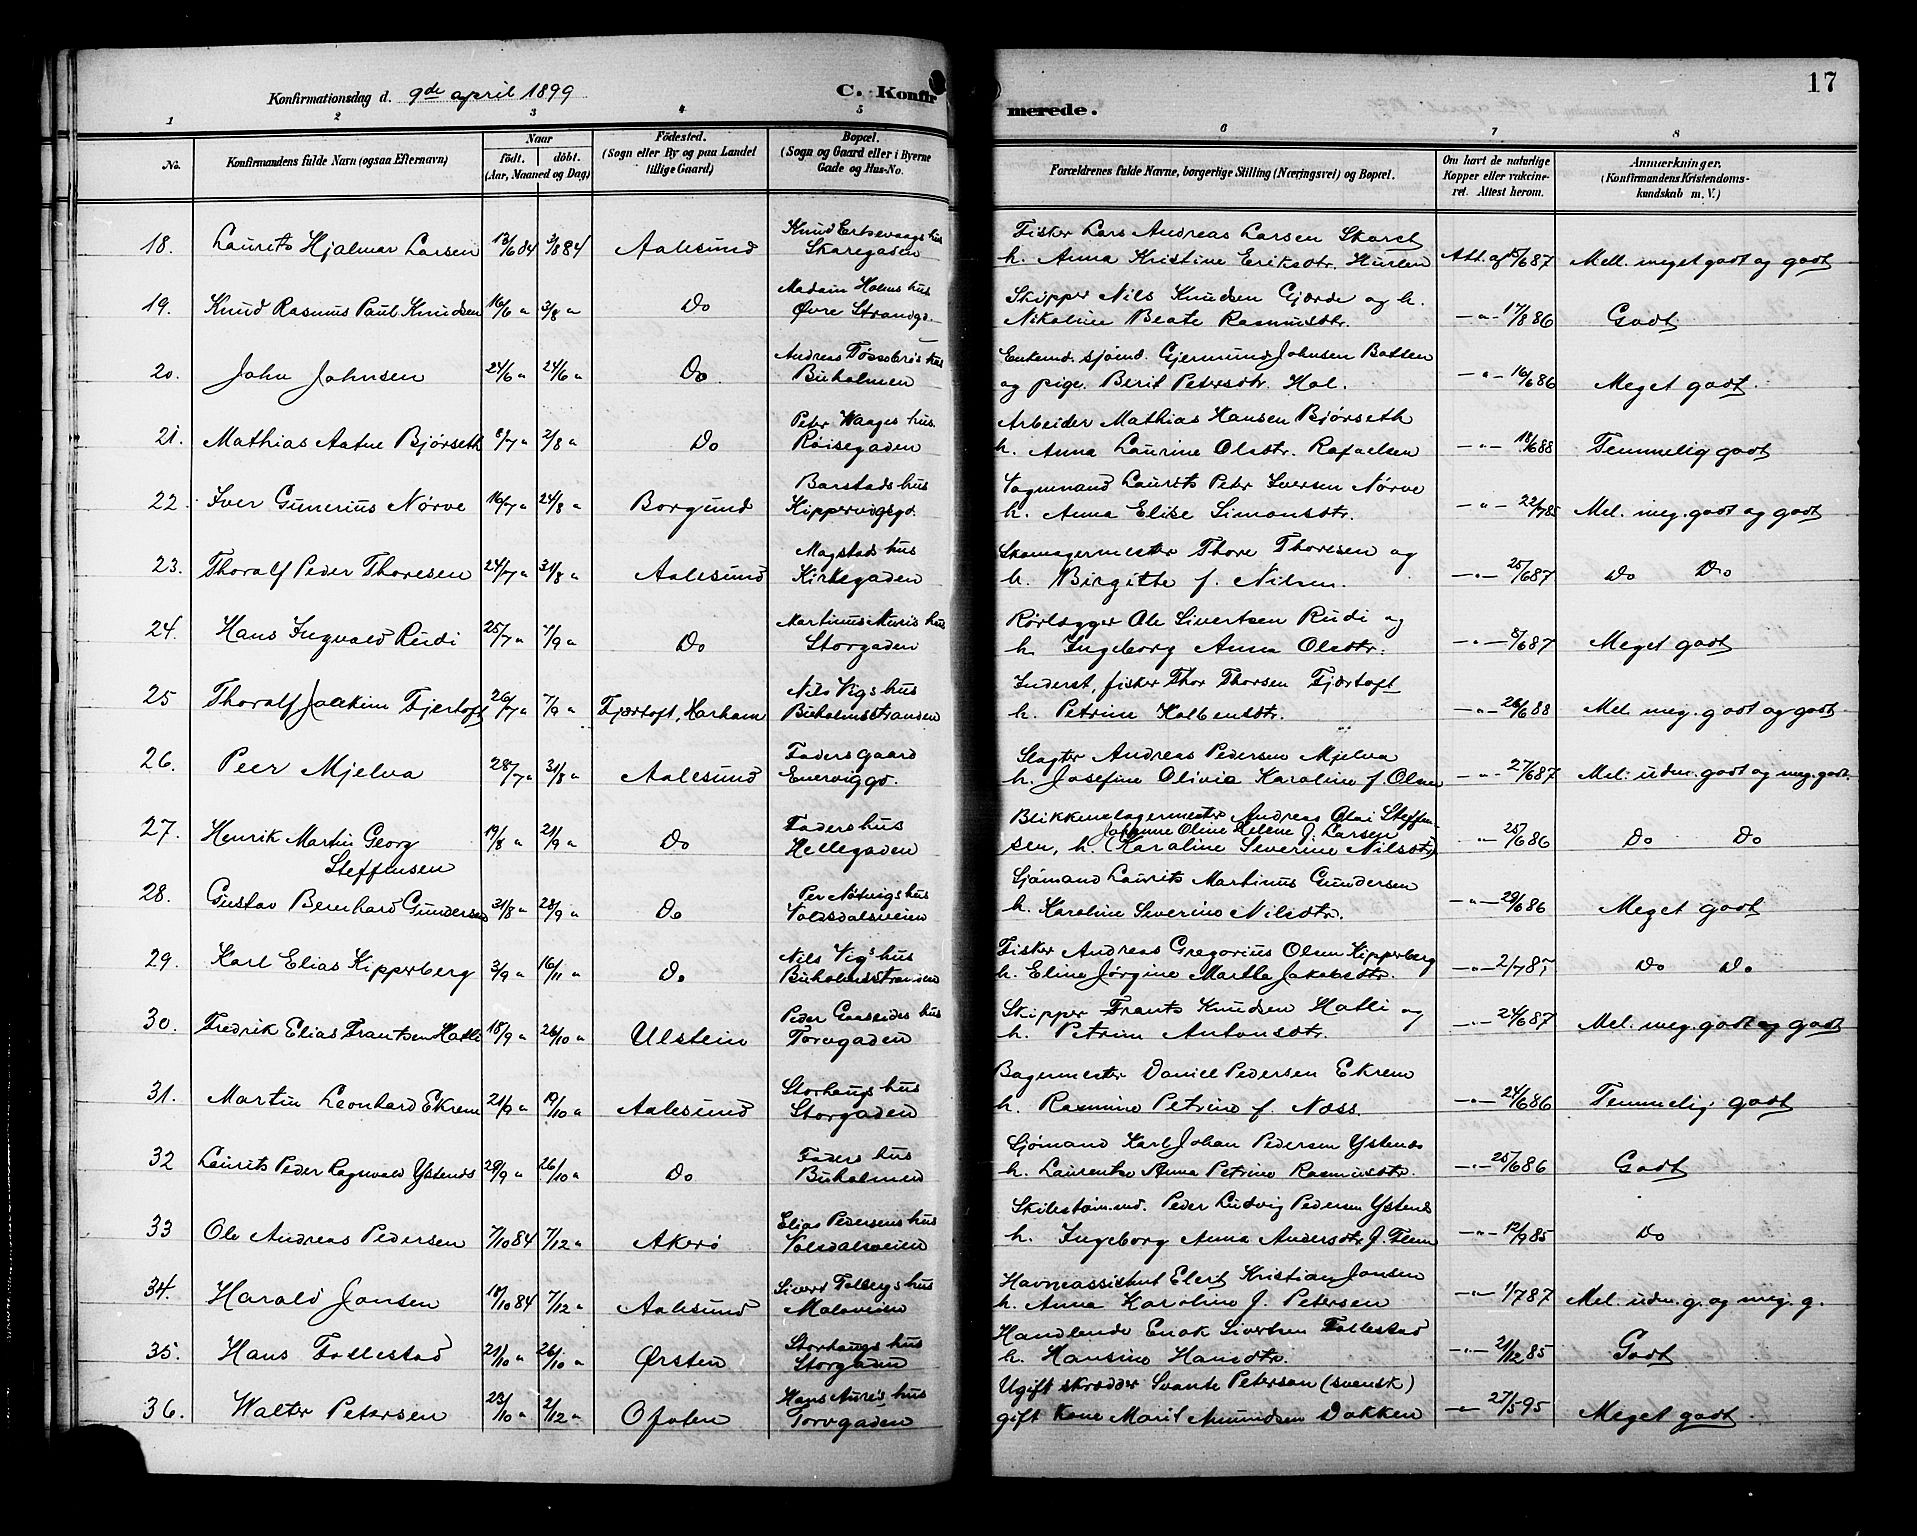 17
Konfirmationsdag d. 9de april 1899
C. Konfirmerede.
1 2 3 4 5 6 7 8
No. Konfirmandens fulde Navn (ogsaa Efternavn) Naar født. døbt. (Aar, Maaned og Dag) Fødested. (Sogn eller By og paa Landet tillige Gaard) Bopæl. (Sogn og Gaard eller i Byerne Gade og Hus-No. Forældrenes fulde Navne, borgerlige Stilling (Næringsvei) og Bopæl. Om havt de naturlige Kopper eller vakcineret. Attest herom. Anmærkninger. (Konfirmandens Kristendomskundskab m. V.)
18. Laurits Hjalmar Larsen 13/6 84 3/8 84 Aalesund Knud Ertsvaags hus Skaregaden
Fisker Lars Andreas Larsen Skaret
h. Anna Kristine Eriksdtr. Hurlen Att. af 15/6 87 Mell. meget godt og godt
19. Knud Rasmus Paul Knudsen 16/6 " 3/8 " Do Madam Holms hus Øvre Strandgd.
Skipper Nils Knudsen Gjærde og h.
Nikoline Beate Rasmusdtr. -"- 17/8 86 Godt
20. John Johnsen 24/6 " 24/6 " Do Andreas hus Buholmen
Enkemd. sjømd. Gjermund Johnsen Batten
og pige Berit Petersdtr. Hol. -"- 16/6 86 Meget godt
21. Mathias Aatue Bjørseth 8/7 " 2/8 " Do Peter Waages hus Røisegaden
Arbeider Mathias Hansen Bjørseth
h. Anna Laurine Olsdtr. Rafaelsen -"- 18/6 88 Temmelig godt
22. Iver Gunerius Nørve 16/7 " 24/8 " Borgund Barstads hus Kippervigsgd.
Vognmand Laurits Peter Iversen Nørve
h. Anna Elise Simonsdtr. -"- 22/7 85 Mel. meg. godt og godt
23. Thoralf Peder Thoresen 24/7 " 31/8 " Aalesund Mogstads hus Kirkegaden
Skomagermester Thore Thoresen og
h. Birgitte f. Nilsen. -"- 25/6 87 Do Do
24. Hans Ingvald Rudi 25/7 " 7/9 " Do Martinus Aures hus Storgaden
Rørlægger Ole Sivertsen Rudi og
h. Ingeborg Anna Olsdtr. -"- 8/6 87 Meget godt
25 Thoralf Joakim Fjertoft 26/7 " 7/9 " Fjærtoft, Harham Nils Vigs hus Buholmsstranden
Inderst, fisker Thor Thorsen Fjærtoft
h. Petrine Kolbensdtr. -"- 26/6 88 Mel. meg. godt og godt
26. Peer Mjelva 28/7 " 31/8 " Aalesund Faders Gaard Enerviggd.
Slagter Andreas Pedersen Mjelva
h. Josefine Olivia Karoline f. Olsen -"- 27/6 87 Mel. udm. godt og meg. godt.
27. Henrik Martin Georg Steffensen 19/8 " 21/9 " Do Faders hus Hellegaden
Blikkenslagermester Andreas Olai Steffen-
Johanne Oline Helene f. Larsen
sen, h. (Karoline Severine Nilsdtr.) "- 25/6 86 Do Do
28. Gustav Bernhard Gundersen 31/8 " 28/9 " Do Per Nøtvigs hus Volsdalsveien
Sjømand Laurits Martinus Gundersen
h. Karoline Severine Nilsdtr. -"- 29/6 86 Meget godt
29. Karl Elias Kipperberg 3/9 " 16/11 " Do Nils Vigs hus Buholmsstranden
Fisker Andreas Gregorius Olsen Kipperberg
h. Eline Jørgine Martha Jakobsdtr. -"- 2/7 87 Do Do
30. Fredrik Elias Frantsen Hatli 18/9 " 26/10 " Ulstein Peder hus Torvgaden
Skipper Frants Knudsen Hatli og
h. Petrine Antonsdtr. -"- 24/6 87 Mel. meg. godt og godt
31. Martin Leonhard Ekrem 21/9 " 19/10 " Aalesund Storhaugs hus Storgaden
Bagermester Daniel Pedersen Ekrem
h. Rasmine Petrine f. Næss. -"- 24/6 86 Temmelig godt
32 Laurits Peder Ragnvald Ystenes 29/9 " 26/10 " Do Faders hus Buholmen
Sjømand Karl Johan Pedersen Ystenes
h. Laurentse Anna Petrine Rasmusdtr. -"- 25/6 86 Godt
33 Ole Andreas Pedersen 7/10 84 7/12 " Akerø Elias Pedersens hus Volsdalsveien
Skilsstøm.md. Peder Ludvig Pedersen Ystenes
h. Ingeborg Anna Andersdtr. f. Flem -"- 12/9 85 Do
34. Harald Jansen 18/10 84 7/12 " Aalesund Sivert Tolbergs hus Moloveien
Havneassistent Elert Kristian Jansen
h. Anna Karoline f. Petersen -"- 1/7 87 Mel. udm. g. og meg. g.
35. Hans Follestad 21/10 " 26/10 " Ørsten Storhaugs hus Storgaden
Handlende Enok Sivertsen Follestad
h. Hansine Hansdtr. -"- 21/12 85 Godt
36. Walter Petersen 23/10 " 2/12 " Ofoten Hans Aures hus Torvgaden
Ugift skrædder Svante Peterson (svensk)
gift Kone Marit Amundsen Dokken -"- 27/5 95 Meget godt.